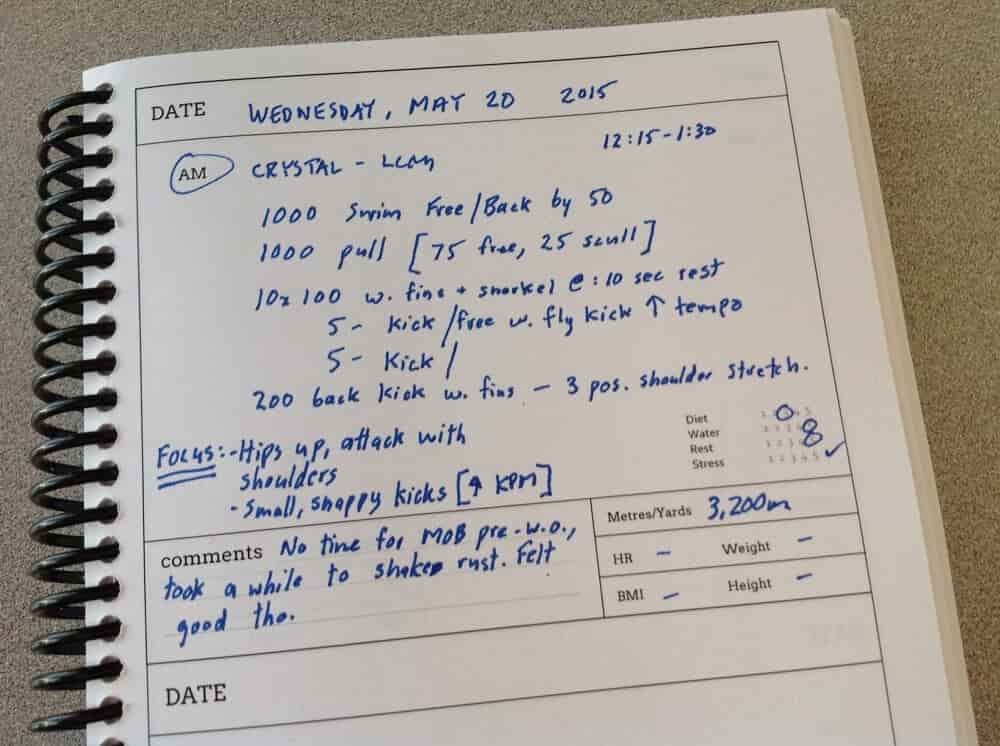 DATE WEDNESDAY, MAY 20 2015
AM CRYSTAL - LCM 12:15-1:30
1000 Swim Free/Back by 50
1000 pull [75 free, 25 scull]
10x100 w. fins + snorkel @ :10 sec rest
5- Kick/free w. fly kick ↑ tempo
5- Kick/
200 back kick w. fins - 3 pos. shoulder stretch.
Diet
Water
Rest 8
Stress 1 2 3 4 5 ✓
FOCUS: -Hips up, attack with
shoulders
-Small, snappy kicks [↑ KPM]
Metres/Yards 3,200m
HR - Weight -
BMI - Height -
comments No time for MOB pre-w.o.,
took a while to shake rust. Felt
good tho.
DATE